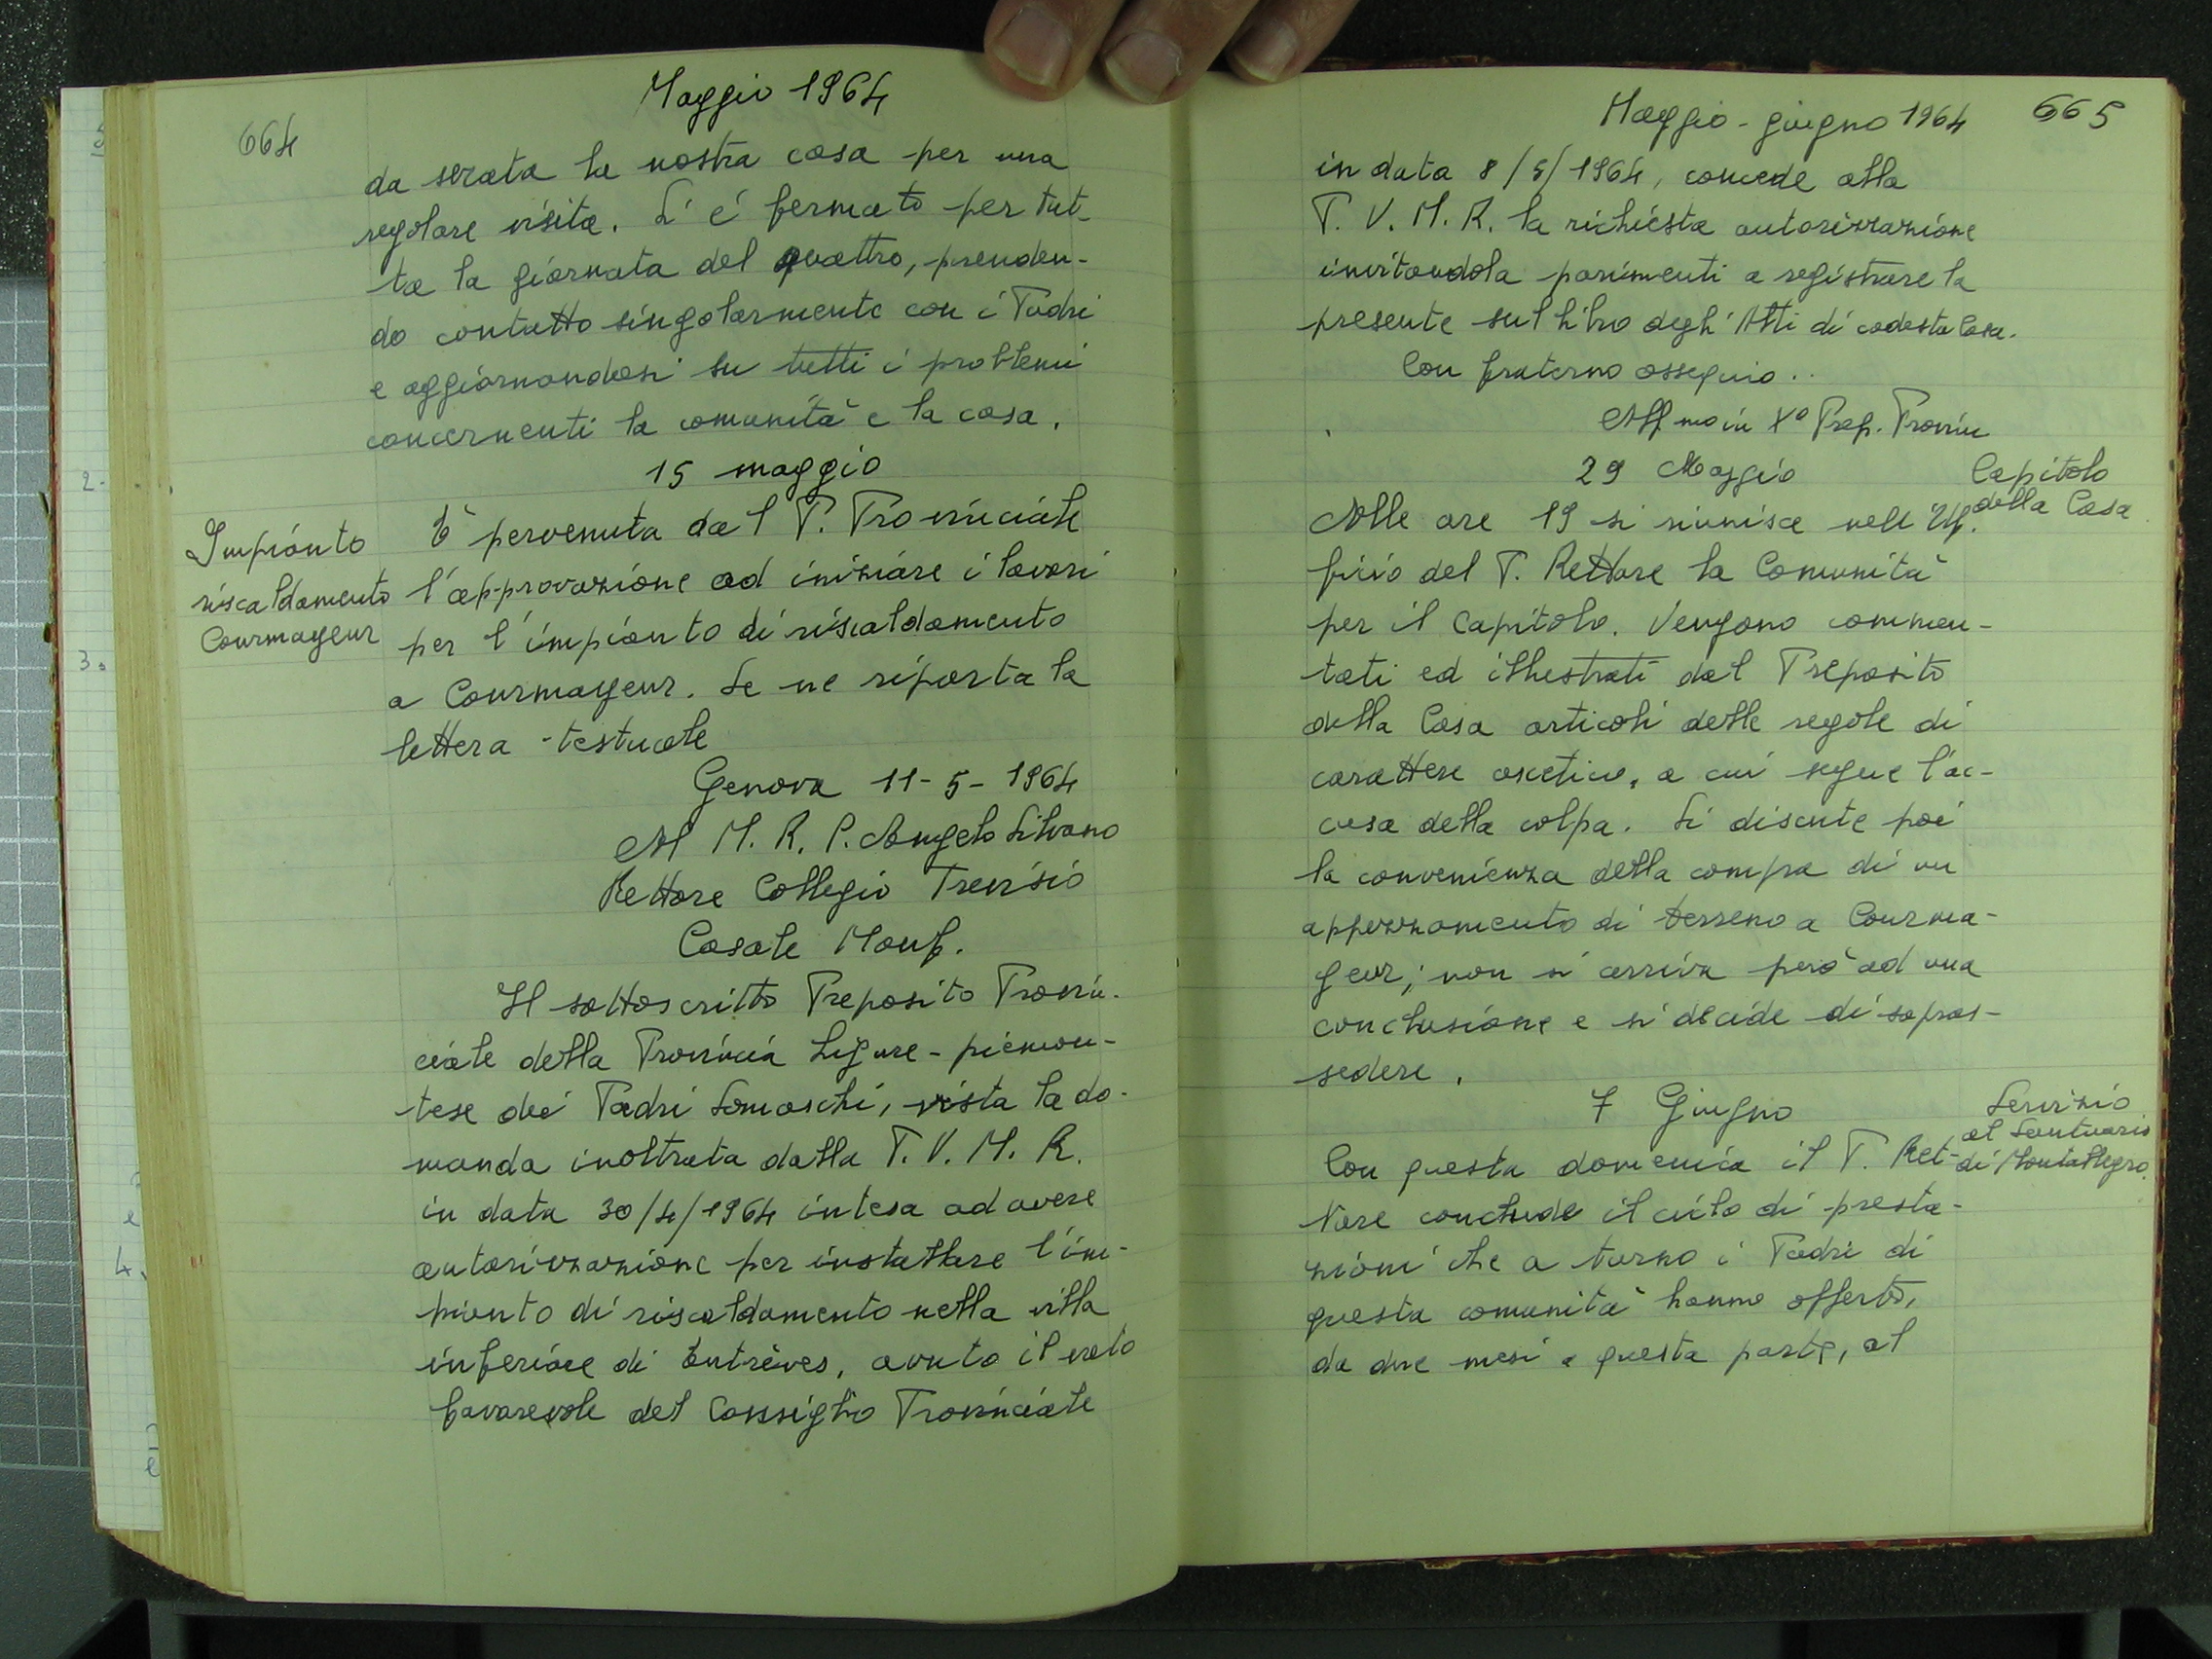 664
Maggio 1964
da serata la nostra casa per una
regolare visita. Si è fermato per tut-
ta la giornata del quattro, prenden-
do contatto singolarmente con i Padri
e aggiornandosi su tutti i problemi
concernenti la comunità e la casa.
15 maggio
Impianto
riscaldamento
Courmayeur
È pervenuta dal P. Provinciale
l'approvazione ad iniziare i lavori
per l'impianto di riscaldamento
a Courmayeur. Se ne riporta la
lettera testuale
Genova 11-5-1964
Al M. R. P. Angelo Silvano
Rettore Collegio Trevisio
Casale Monf.
Il sottoscritto Preposito Provin-
ciale della Provincia Ligure-piemon-
tese dei Padri Somaschi, vista la do-
manda inoltrata dalla P. V. M. R.
in data 30/4/1964 intesa ad avere
autorizzazione per installare l'im-
pianto di riscaldamento nella villa
inferiore di Entrèves, avuto il voto
favorevole del Consiglio Provinciale
Maggio-giugno 1964
665
in data 8/5/1964, concede alla
P. V. M. R. la richiesta autorizzazione
invitandola parimenti a registrare la
presente sul libro degli Atti di codesta Casa.
Con fraterno ossequio..
Aff mo in Xº Prep. Provin
29 Maggio
Capitolo
della Casa
Alle ore 19 si riunisce nell'Uf.
ficio del P. Rettore la Comunità
per il Capitolo. Vengono commen-
tati ed illustrati dal Preposito
della Casa articoli delle regole di
carattere ascetico, a cui segue l'ac-
cusa della colpa. Si discute poi
la convenienza della compra di un
appezzamento di terreno a Courma-
yeur; non si arriva però ad una
conclusione e si decide di sopras-
sedere.
7 Giugno
Servizio
al Santuario
di Montallegro.
Con questa domenica il P. Ret-
tore conclude il ciclo di presta-
zioni che a turno i Padri di
questa comunità hanno offerto,
da due mesi a questa parte, al
2.
3.
4.